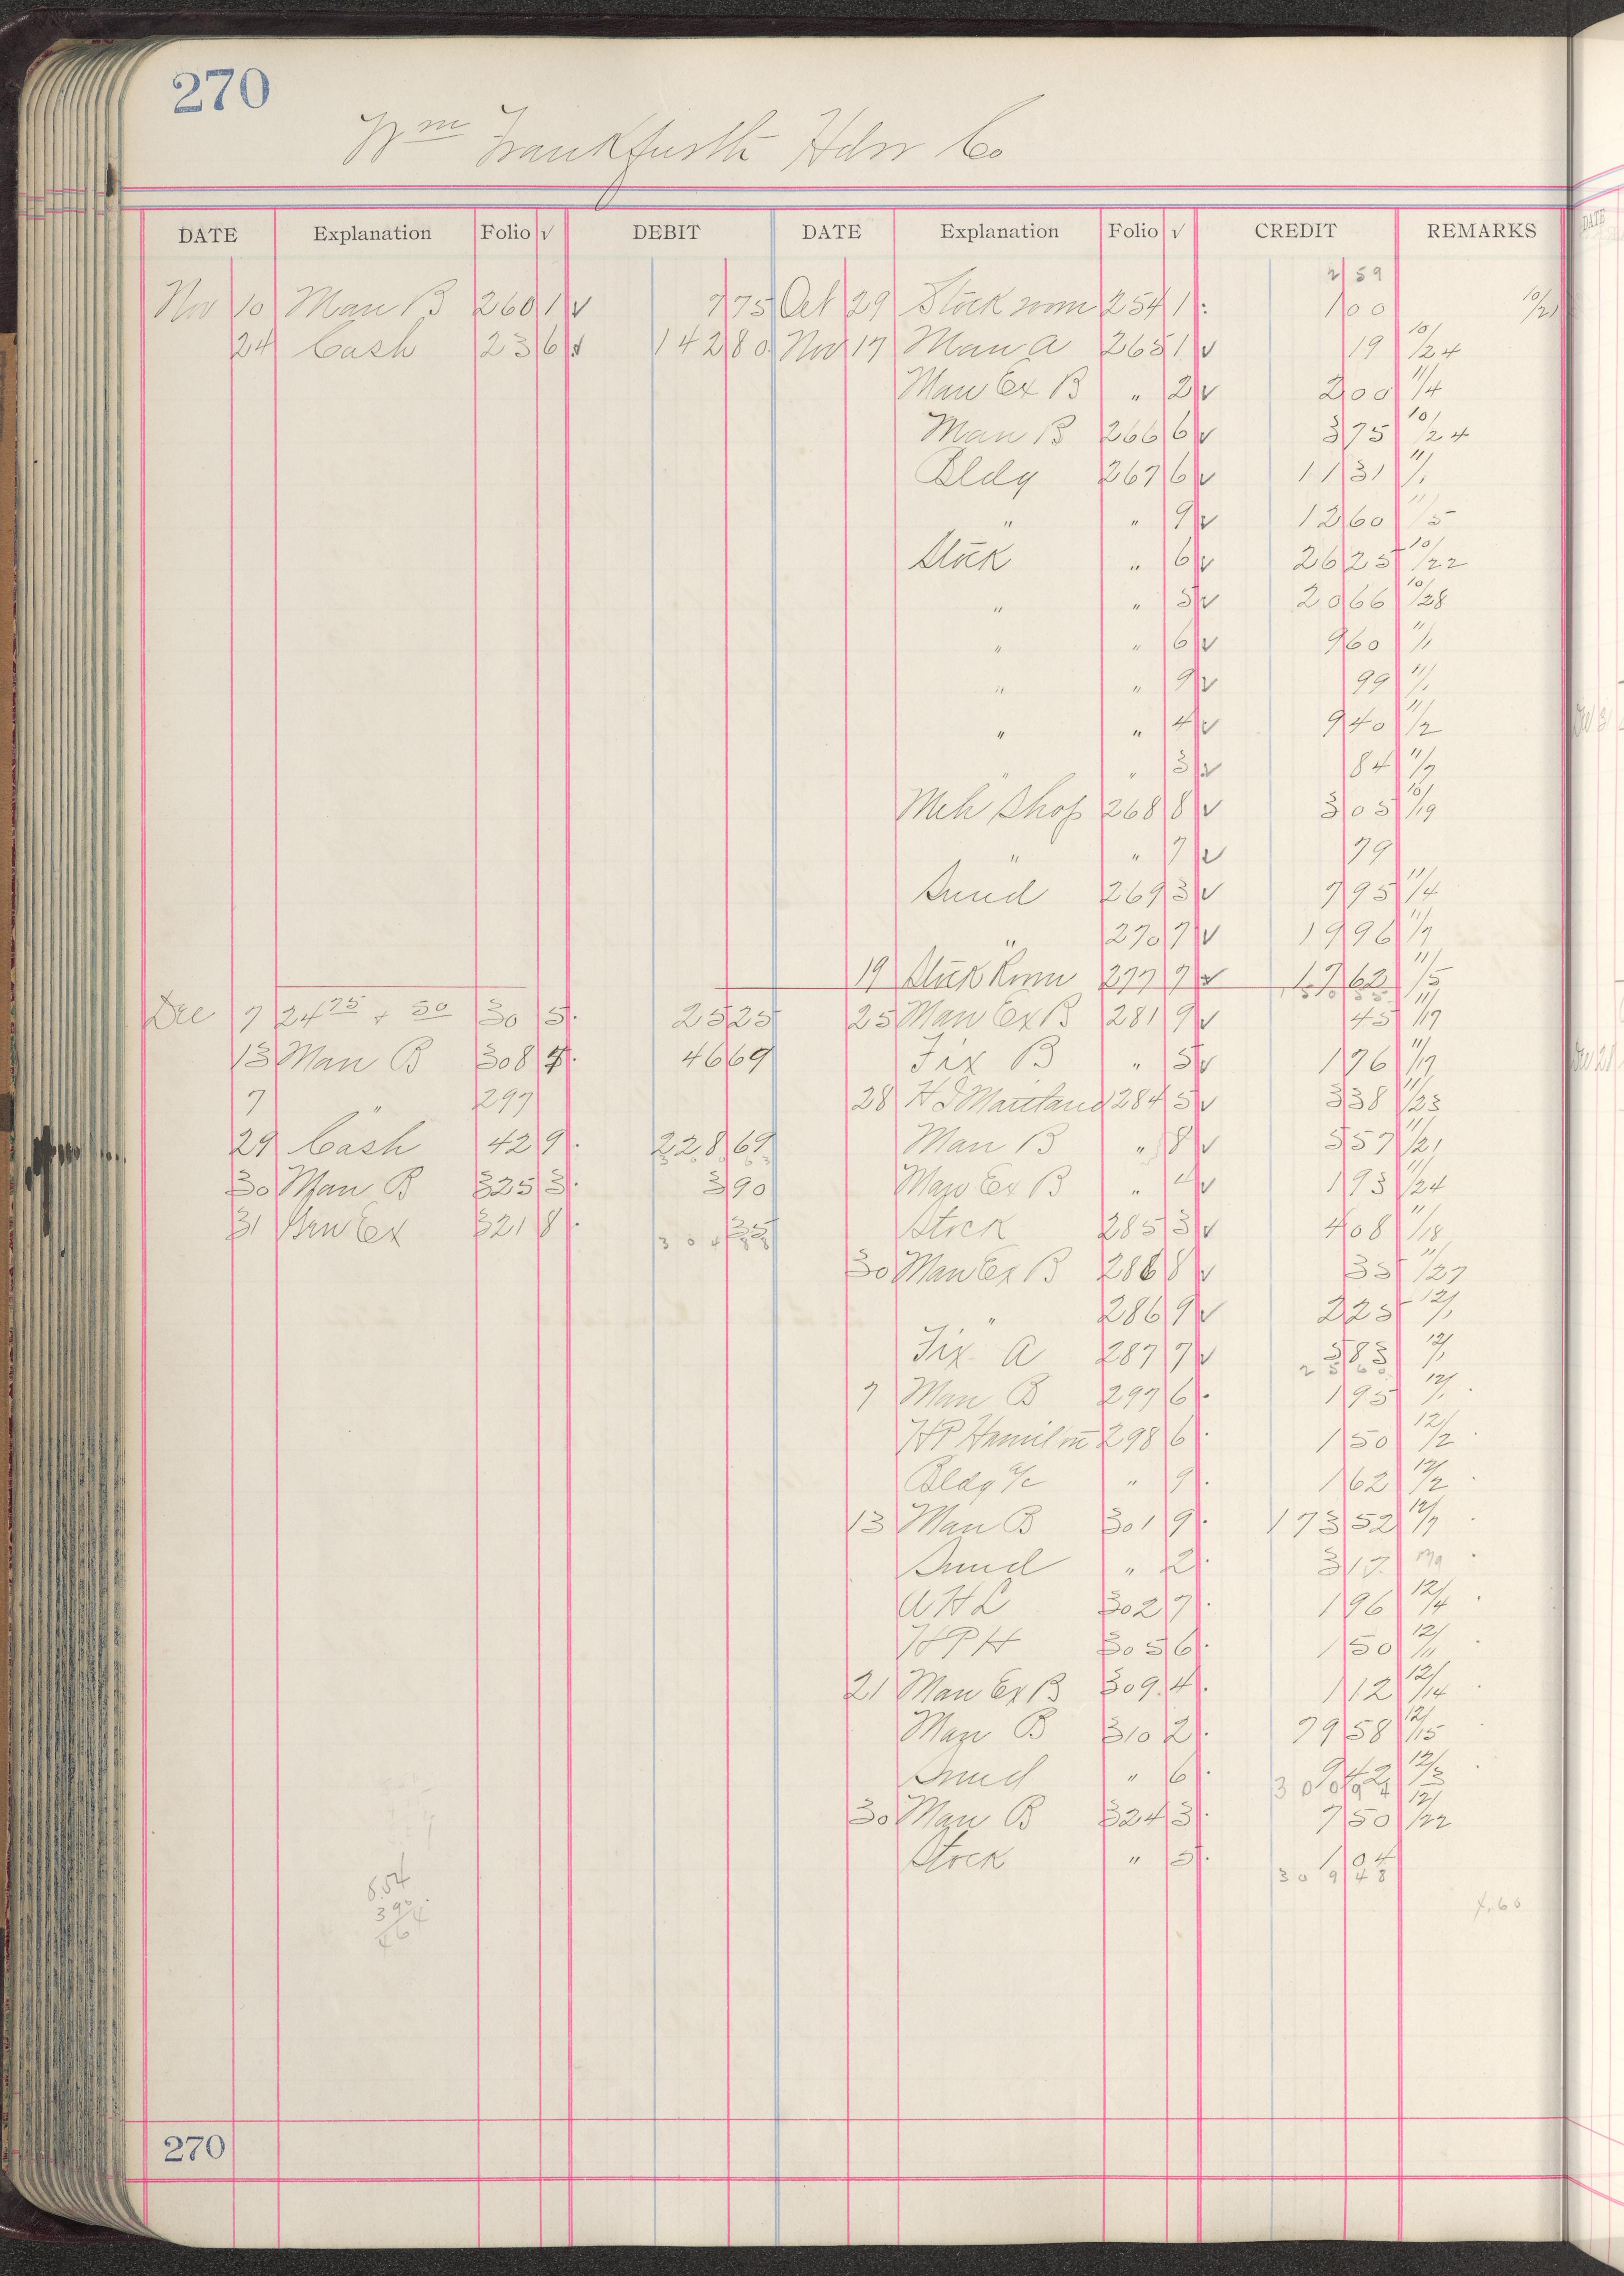 270
Wm Frankfurth Hdw Co
DATE Explanation Folio √ DEBIT DATE Explanation Folio √ CREDIT REMARKS
2 59
Nov 10 Man B 260 1 √ 7 75 Oct 29 Stock room 254 1 1 00 10/21
24 Cash 23 6 √ 142 80 Nov 17 Man A 265 1 √ 19 10/24
Man Ex B " 2 √ 2 00 11/4
Man B 266 6 √ 3 75 10/24
Bldg 267 6 √ 11 31 11/1
" " 9 √ 12 60 11/5
Stock " 6 √ 26 25 10/22
" " 5 √ 20 66 10/28
" " 6 √ 9 60 11/1
" " 9 √ 99 11/1
" " 4 √ 9 40 11/2
" " 3 √ 84 11/7
Mch Shop 268 8 √ 3 05 10/19
" " 7 √ 79
Sund 269 3 √ 7 95 11/4
" 270 7 √ 19 96 11/7
19 Stock Room 277 7 √ 17 62 11/5
Dec 7 24 75 + 50 30 5 25 25 25 Man Ex B 281 9 √ 45 11/17
13 Man B 308 7 46 69 Fix B " 5 √ 1 76 11/17
7 " 297 28 H S Maitland 284 5 √ 3 38 11/23
29 Cash 42 9 228 69 Man B " 8 √ 5 57 11/21
30 Man B 325 3 3 90 Man Ex B " 4 √ 1 93 11/24
31 Gen Ex 321 8 35 Stock 285 3 √ 4 08 11/18
304 88
30 Man Ex B 286 8 √ 35 11/27
" 286 9 √ 2 25 12/1
Fix A 287 7 √ 5 83 12/1
7 Man B 297 6 1 95 12/1
H P Hamilton 298 6 1 50 12/2
Bldg a/c " 9 1 62 12/2
13 Man B 301 9 173 52 12/7
Sund " 2 3 17
A H L 302 7 1 96 12/4
H P H 305 6 1 50 12/11
21 Man Ex B 309 4 1 12 12/14
Man B 310 2 79 58 12/15
Sund " 6 9 42 12/3
30 Man B 324 3 7 50 12/22
Stock " 5 1 04
309 48
8.54
3 90
4.60
270